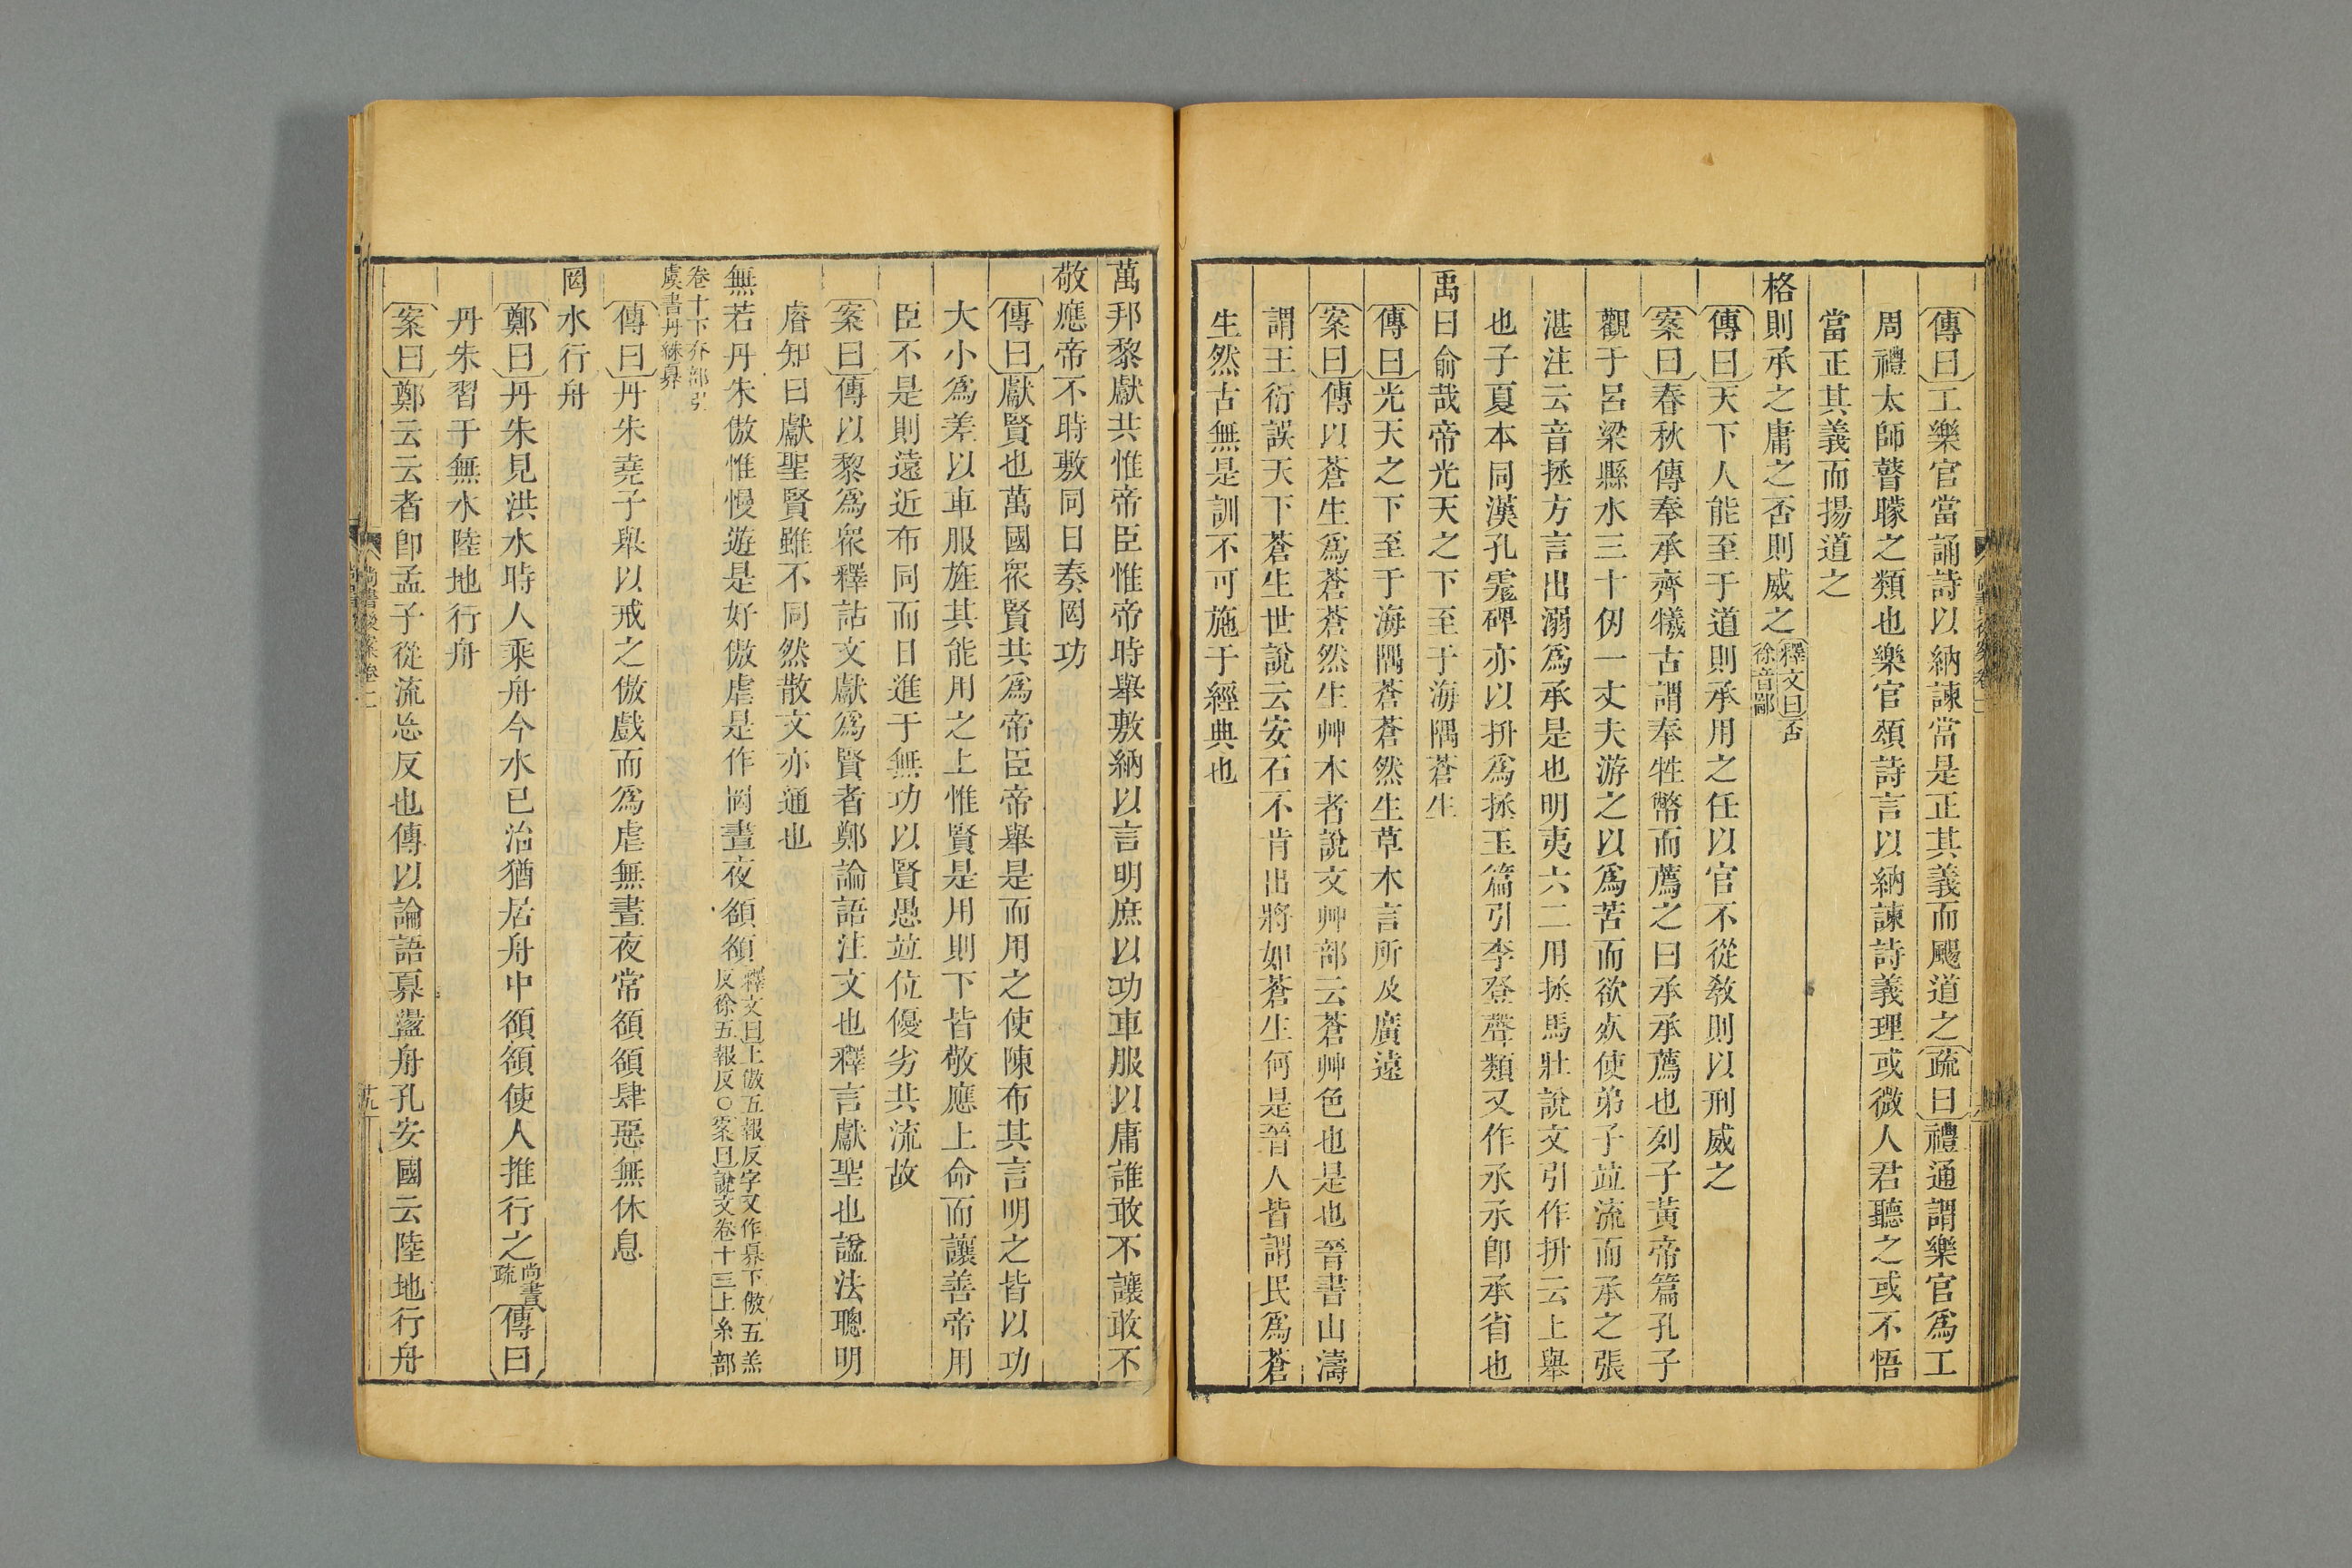 傳曰工樂官當誦詩以納諫當是正其義而颺道之疏曰禮通謂樂官爲工
周禮太師瞽矇之類也樂官頌詩言以納諫詩義理或微人君聽之或不悟
當正其義而揚道之
格則承之庸之否則威之釋文曰否徐音鄙
傳曰天下人能至于道則承用之任以官不從敎則以刑威之
案曰春秋傳奉承齊犧古謂奉牲幣而薦之曰承承薦也列子黃帝篇孔子
觀于呂梁縣水三十仞一丈夫游之以爲苦而欲㱙使弟子竝流而承之張
湛注云音拯方言出溺爲承是也明夷六二用拯馬壯說文引作抍云上舉
也子夏本同漢孔霳碑亦以抍爲拯玉篇引李登聲類又作氶氶卽承省也
禹曰俞哉帝光天之下至于海隅蒼生
傳曰光天之下至于海隅蒼蒼然生草木言所及廣遠
案曰傳以蒼生爲蒼蒼然生艸木者說文艸部云蒼艸色也是也晉書山濤
謂王衍誤天下蒼生世說云安石不肯出將如蒼生何是晉人皆謂民爲蒼
生然古無是訓不可施于經典也
萬邦黎獻共惟帝臣惟帝時舉敷納以言明庶以功車服以庸誰敢不讓敢不
敬應帝不時敷同日奏罔功
傳曰獻賢也萬國眾賢共爲帝臣帝舉是而用之使陳布其言明之皆以功
大小爲差以車服旌其能用之上惟賢是用則下皆敬應上命而讓善帝用
臣不是則遠近布同而日進于無功以賢愚竝位優劣共流故
案曰傳以黎爲眾釋詁文獻爲賢者鄭論語注文也釋言獻聖也諡法聰明
睿知曰獻聖賢雖不同然散文亦通也
無若丹朱傲惟慢遊是好傲虐是作罔晝夜頟頟釋文曰上傲五報反字又作奡下傲五羔反徐五報反○案曰說文卷十三上糸部
卷十下夰部引虞書丹絑奡
傳曰丹朱堯子舉以戒之傲戲而爲虐無晝夜常頟頟肆惡無休息
罔水行舟
鄭曰丹朱見洪水時人乘舟今水已治猶居舟中頟頟使人推行之尚書疏傳曰
丹朱習于無水陸地行舟
案曰鄭云云者卽孟子從流忘反也傳以論語奡盪舟孔安國云陸地行舟
尚書後案卷二